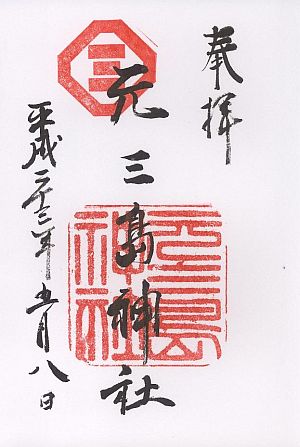 奉拝
元三島神社
平成二十二年五月八日
三
元三島
神社